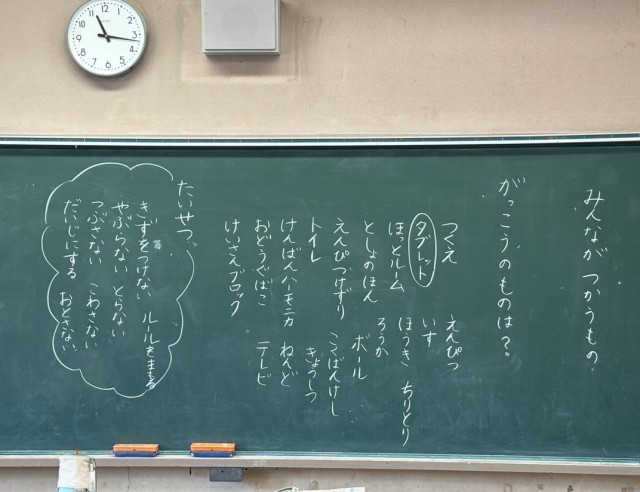 みんなが つかうもの
がっこうのものは?
つくえ えんぴつ
タブレット いす
ほっとルーム ほうき ちりとり
としょのほん ろうか
えんぴつけずり ボール
トイレ こくばんけし
けんばんハーモニカ きょうしつ
おどうぐばこ ねんど
けいさんブロック テレビ
たいせつ。
きずをつけない ルールをまもる
やぶらない とらない
つぶさない こわさない
だいじにする おとさない
12
1
2
3
4
5
6
7
8
9
10
11